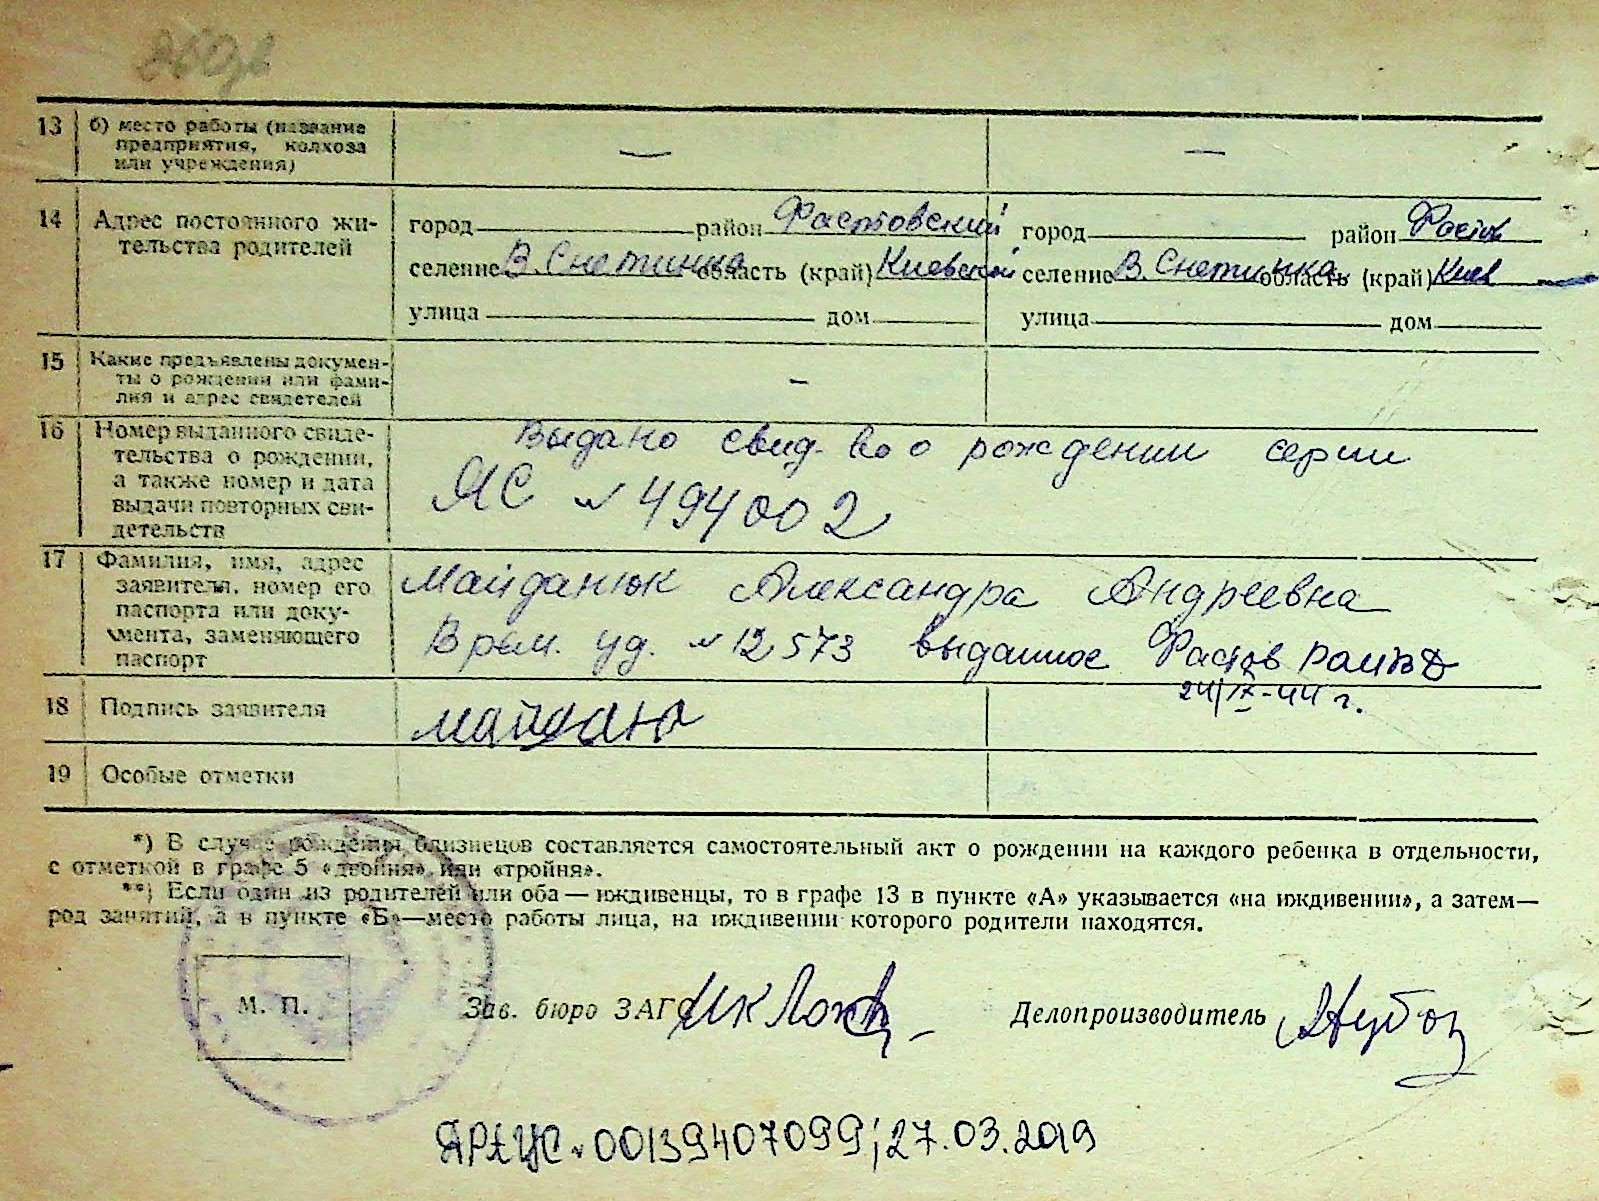 13 б) место работы (название
предприятия, колхоза
или учреждения) — —
14 Адрес постоянного жи-
тельства родителей
город район Фастовский город район Фастов
селение В. Снетинка область (край) Киевской селение В. Снетинка область (край) Киев
улица дом улица дом
15 Какие предъявлены докумен-
ты о рождении или фами-
лия и адрес свидетелей –
16 Номер выданного свиде-
тельства о рождении,
а также номер и дата
выдачи повторных сви-
детельств
Выдано свид-во о рождении серии
ЯС № 494002
17 Фамилия, имя, адрес
заявителя, номер его
паспорта или доку-
мента, заменяющего
паспорт
Майданюк Александра Андреевна
Врем. уд. № 12573 выданное Фастов
24/IX-44 г.
18 Подпись заявителя Майданю
19 Особые отметки
*) В случае рождения близнецов составляется самостоятельный акт о рождении на каждого ребенка в отдельности,
с отметкой в графе 5 «двойня» или «тройня».
**) Если один из родителей или оба — иждивенцы, то в графе 13 в пункте «А» указывается «на иждивении», а затем—
род занятий, а в пункте «Б»—место работы лица, на иждивении которого родители находятся.
М. П. Зав. бюро ЗАГС Делопроизводитель
№ 00139407099; 27.03.2019